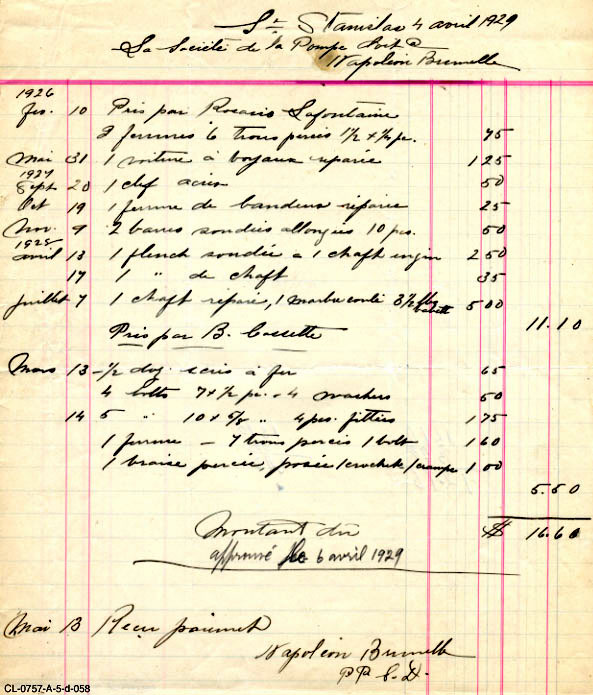 St Stanislas 4 avril 1929
La Société de la Pompe
Napoléon Brunelle
1926
fev. 10 Pris par Rosario Lafontaine
2 ferrures 6 trous percés 1 1/2 x 1/4 pc. 75
Mai 31 1 voiture à boyaux réparée 1 25
1927
Sept 20 1 clef acier 50
Oct 19 1 ferrure de bandeux réparée 25
Nov. 9 2 barres soudées allongées 10 pcs. 50
1928
avril 13 1 flench soudée a 1 chaft engin 2 50
17 1 " de chaft 35
juillet 7 1 chaft réparé, 1 marbre coulé 3 1/2 lbs babitt 5 00
11.10
Pris par B. Cossette
Mars 13 - 1/2 doz. scies à fer 65
4 bolts 7 x 1/2 pc. - 4 washers 50
14 5 " 10 x 5/8 " 4 pcs. fittées 1 75
1 ferrure - 7 trous percés 1 bolt 1 60
1 braise percée, posée 1 crochet 1 crampe 1 00
5.50
Montant du $ 16.60
approuvé le 6 avril 1929
Mai 13 Reçu paiement
Napoléon Brunelle
CL-0757-A-5-d-058